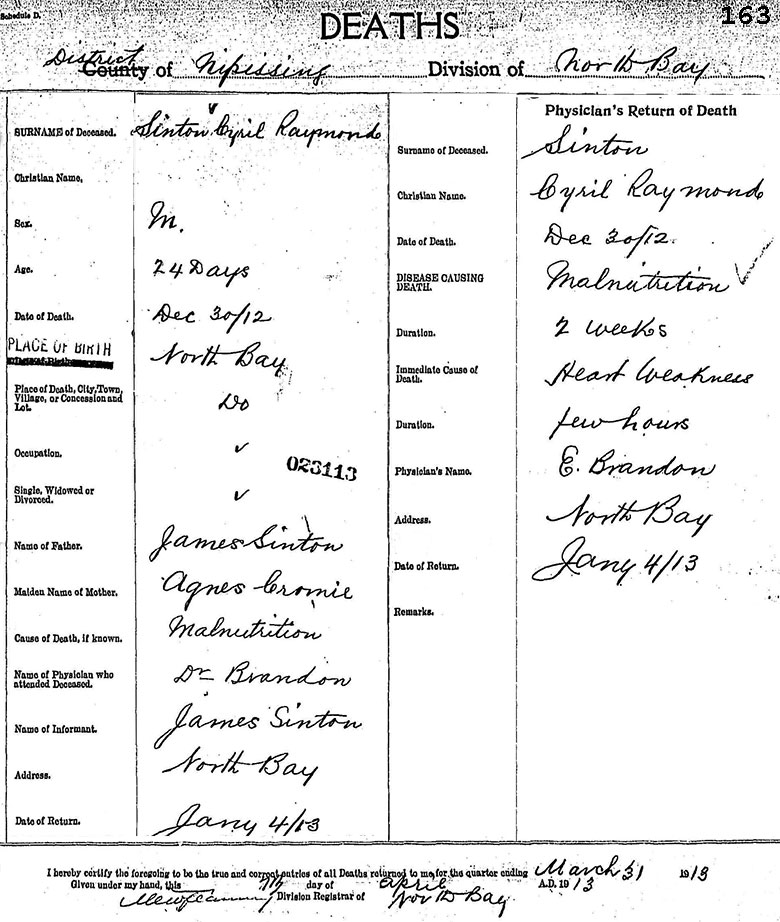 Schedule D.
DEATHS
163
District
County of Nipissing Division of North Bay
SURNAME of Deceased. Sinton Cyril Raymond
Christian Name.
Sex. M.
Age. 24 Days
Date of Death. Dec 30/12
PLACE OF BIRTH North Bay
Place of Death, City, Town, Village, or Concession and Lot. Do
Occupation. ✓
023113
Single, Widowed or Divorced. ✓
Name of Father. James Sinton
Maiden Name of Mother. Agnes Cromie
Cause of Death, if known. Malnutrition
Name of Physician who attended Deceased. Dr Brandon
Name of Informant. James Sinton
Address. North Bay
Date of Return. Jany 4/13
Physician's Return of Death
Surname of Deceased. Sinton
Christian Name. Cyril Raymond
Date of Death. Dec 30/12.
DISEASE CAUSING DEATH. Malnutrition ✓
Duration. 2 weeks
Immediate Cause of Death. Heart Weakness
Duration. few hours
Physician's Name. E. Brandon
Address. North Bay
Date of Return. Jany 4/13
Remarks.
I hereby certify the foregoing to be the true and correct entries of all Deaths returned to me for the quarter ending March 31 1913
Given under my hand, this 7th day of April A.D. 1913
Division Registrar of North Bay